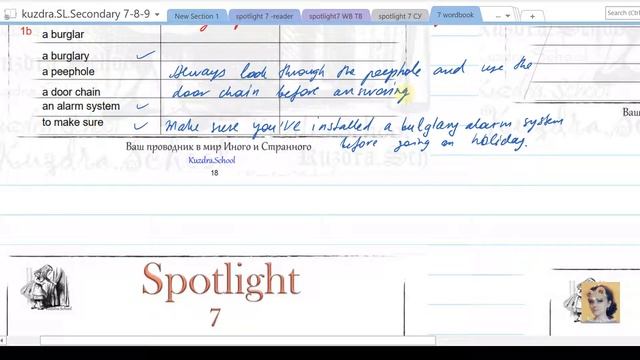 kuzdra.SL.Secondary 7-8-9
New Section 1
spotlight 7 -reader
spotlight7 WB TB
spotlight 7 СУ
7 wordbook
Search (Ctrl
1b
a burglar
a burglary
a peephole
Always look through the peephole and use the
a door chain
door chain before answering
an alarm system
to make sure
Make sure you've installed a bulglary alarm system
before going on holiday.
Ваш проводник в мир Иного и Странного
Kuzdra.School
18
Spotlight
7
Kuzdra.School